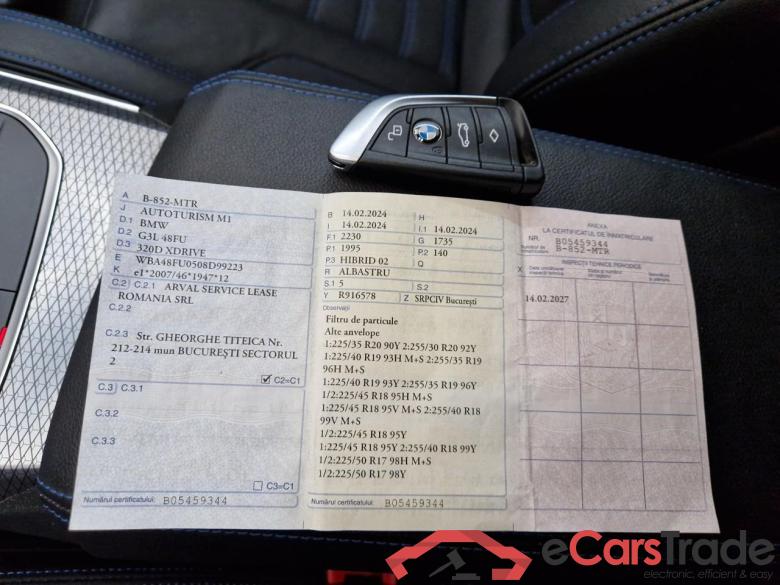 A B-852-MTR
J AUTOTURISM M1
D.1 BMW
D.2 G3L 48FU
D.3 320D XDRIVE
E WBA48FU0508D99223
K e1*2007/46*1947*12
C.2 C.2.1 ARVAL SERVICE LEASE
ROMANIA SRL
C.2.2
C.2.3 Str. GHEORGHE TITEICA Nr.
212-214 mun BUCUREŞTI SECTORUL
2
C2=C1
C.3 C.3.1
C.3.2
C.3.3
C3=C1
Numărul certificatului: B05459344
B 14.02.2024 H
I 14.02.2024 I.1 14.02.2024
F.1 2230 G 1735
P.1 1995 P.2 140
P.3 HIBRID 02 Q
R ALBASTRU
S.1 5 S.2
Y R916578 Z SRPCIV Bucureşti
Observaţii
Filtru de particule
Alte anvelope
1:225/35 R20 90Y 2:255/30 R20 92Y
1:225/40 R19 93H M+S 2:255/35 R19
96H M+S
1:225/40 R19 93Y 2:255/35 R19 96Y
1/2:225/45 R18 95H M+S
1:225/45 R18 95V M+S 2:255/40 R18
99V M+S
1/2:225/45 R18 95Y
1:225/45 R18 95Y 2:255/40 R18 99Y
1/2:225/50 R17 98H M+S
1/2:225/50 R17 98Y
Numărul certificatului: B05459344
ANEXA
LA CERTIFICATUL DE ÎNMATRICULARE
NR. B05459344
B-852-MTR
INSPECŢII TEHNICE PERIODICE
X
14.02.2027
eCarsTrade
electronic, efficient & easy